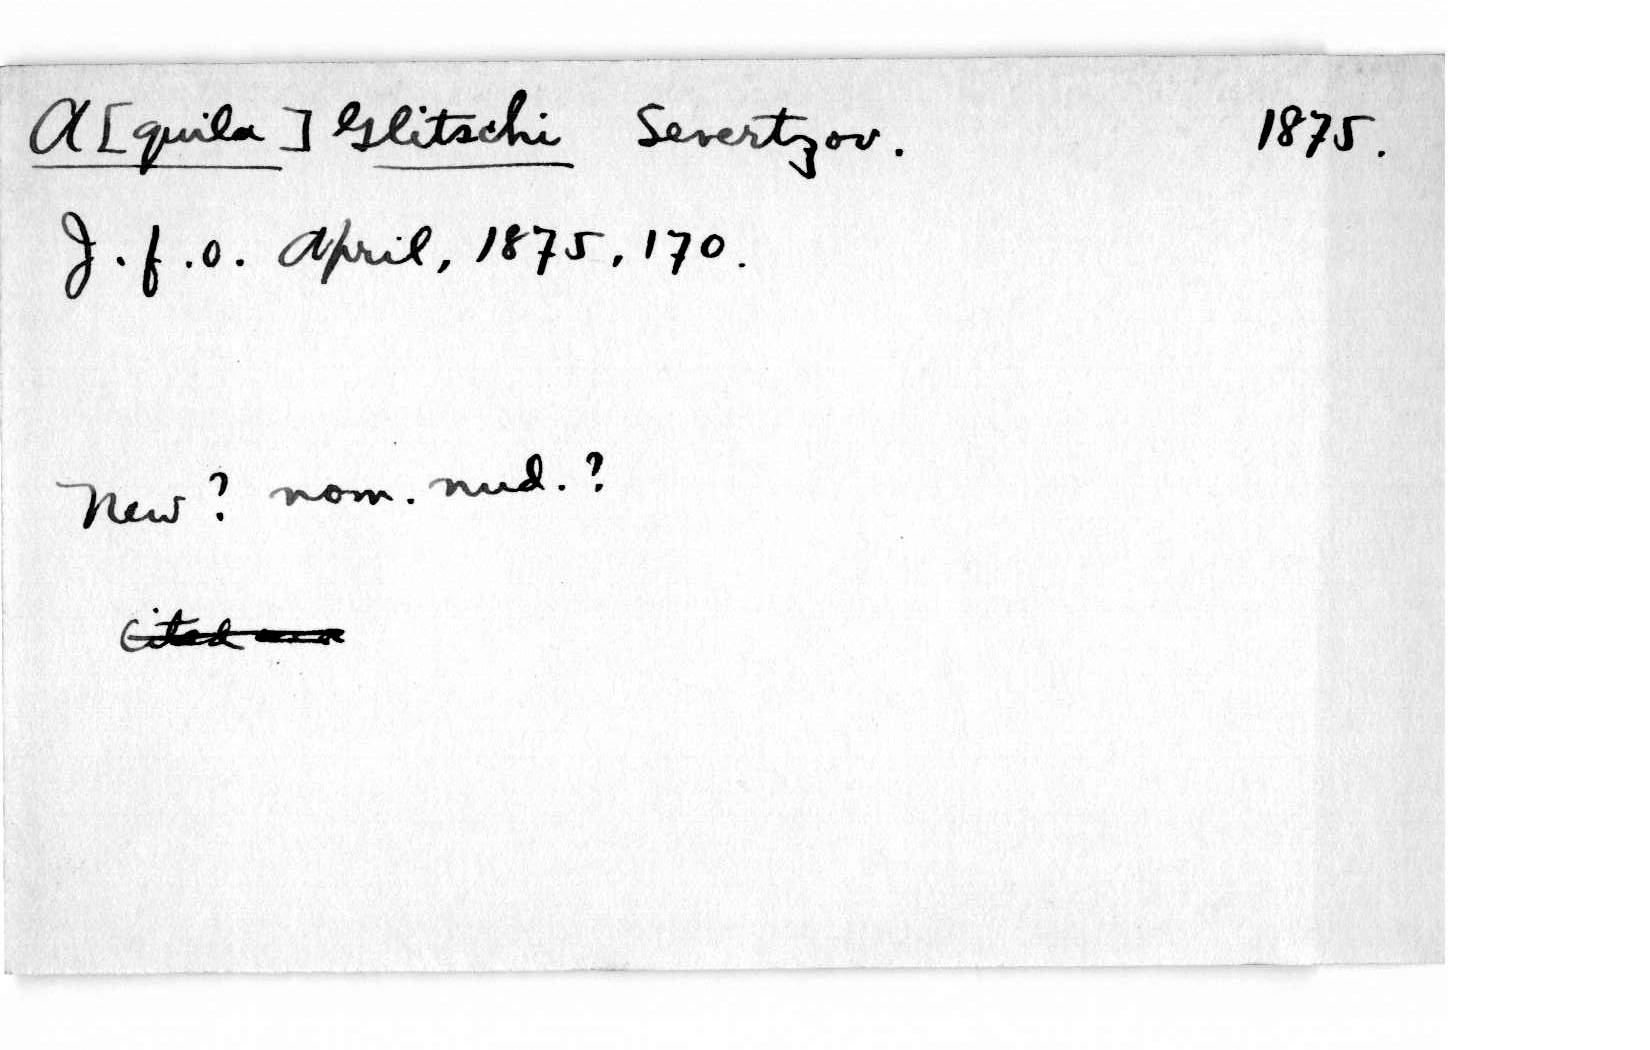 A[quila] Glitschi Severtzov. 1875.
J.f.o. April, 1875, 170.
New? nom. nud.?
Cited